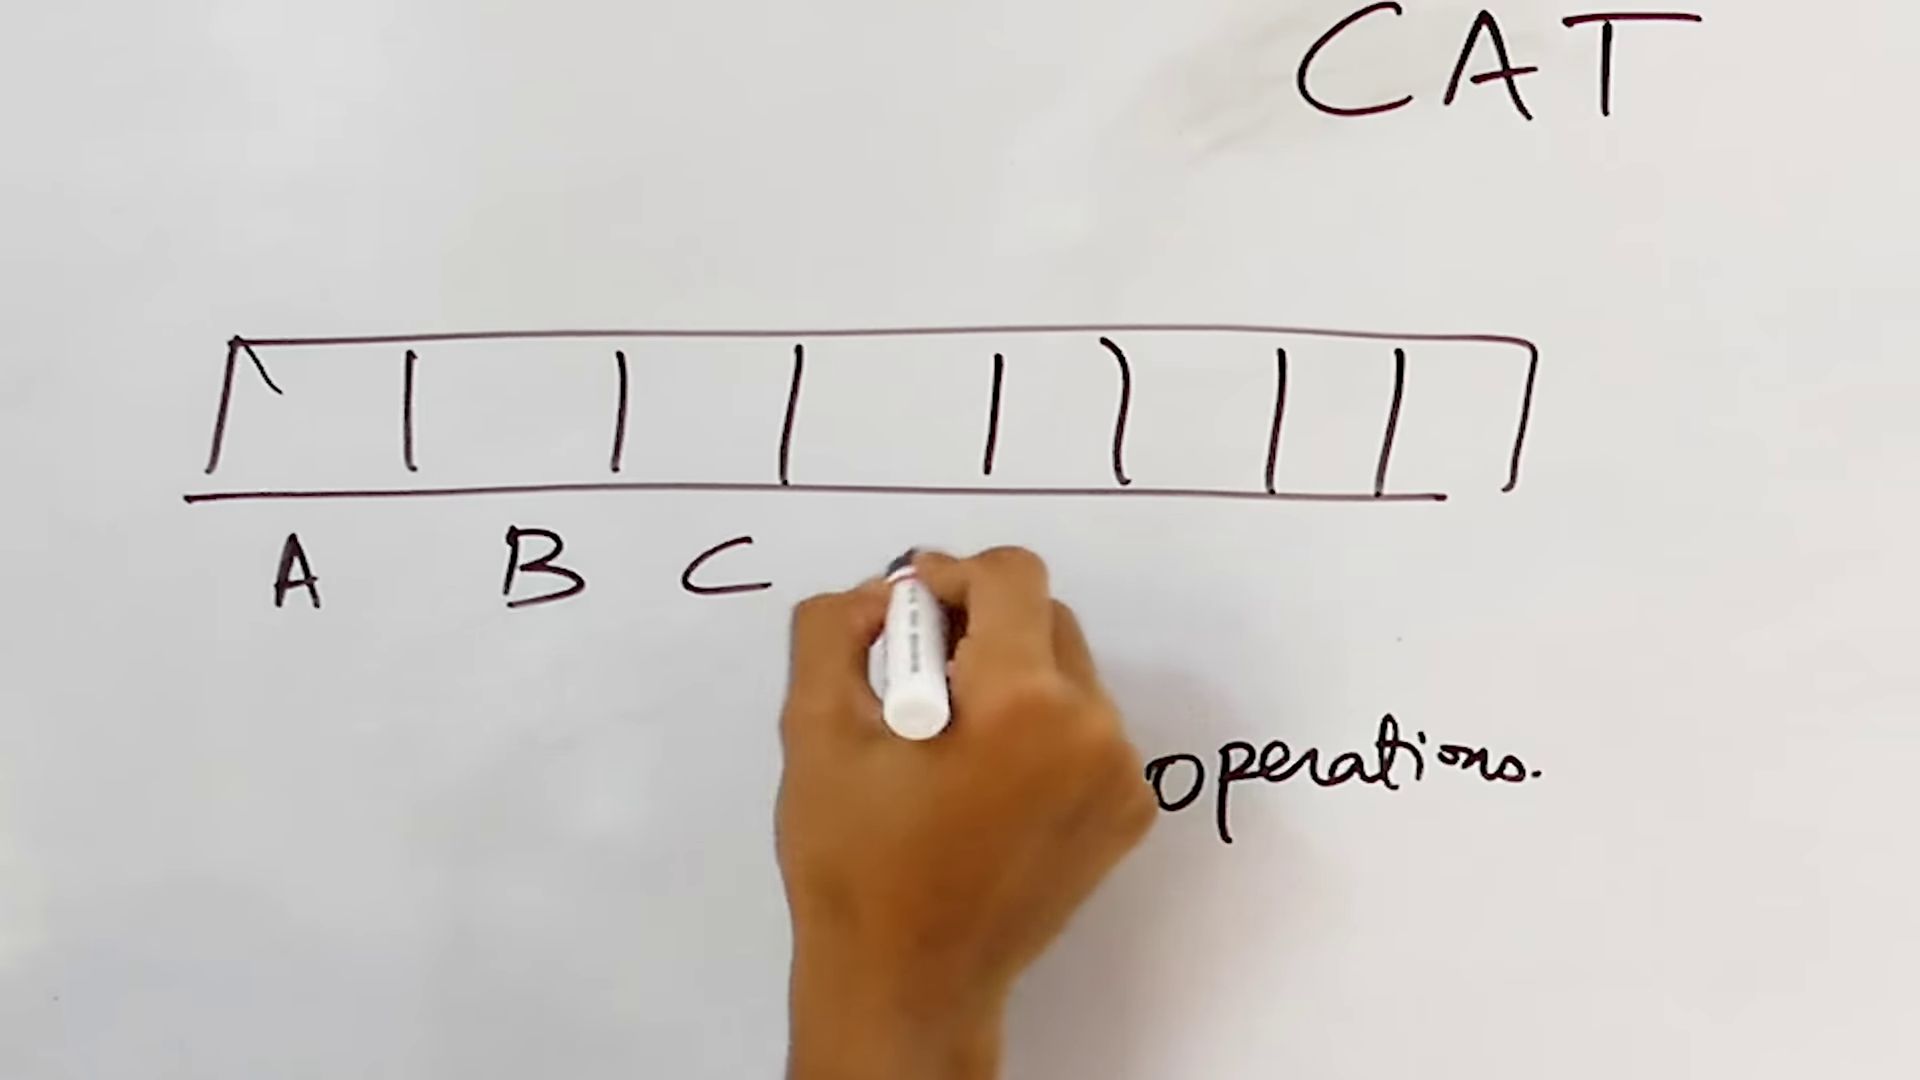 CAT
A B C
operations.